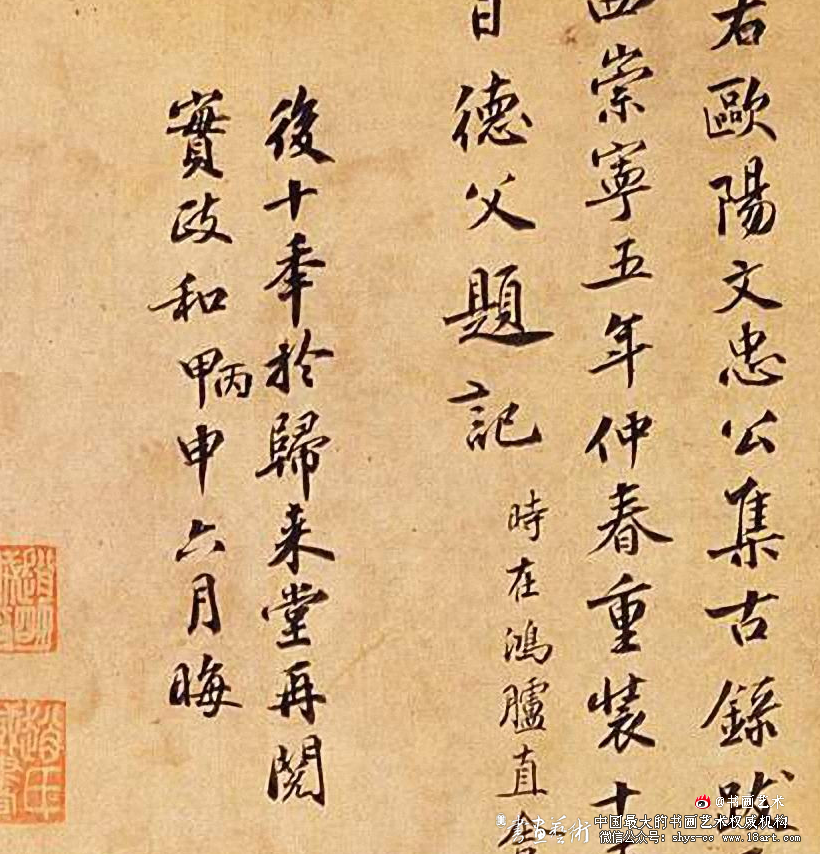 右歐陽文忠公集古錄跋
四崇寧五年仲春重裝十
日德父題記
時在鴻臚直舍
後十秊於歸来堂再閱
實政和甲丙申六月晦
@书画艺术
書畫藝術
中国最大的书画艺术权威机构
微信公众号: shys-cc www.18art.com